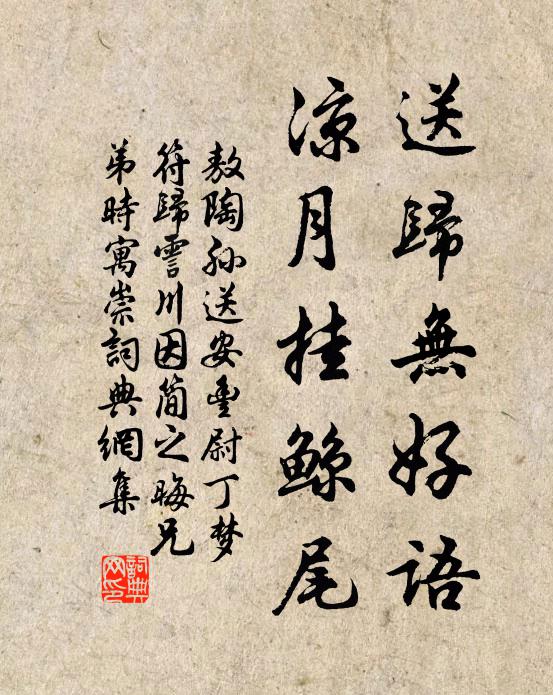 送歸無好語
涼月挂鲸尾
敖陶孙送安豐尉丁梦
符歸霅川因簡之晦兄
弟時寓崇詞典網集
詞典网印